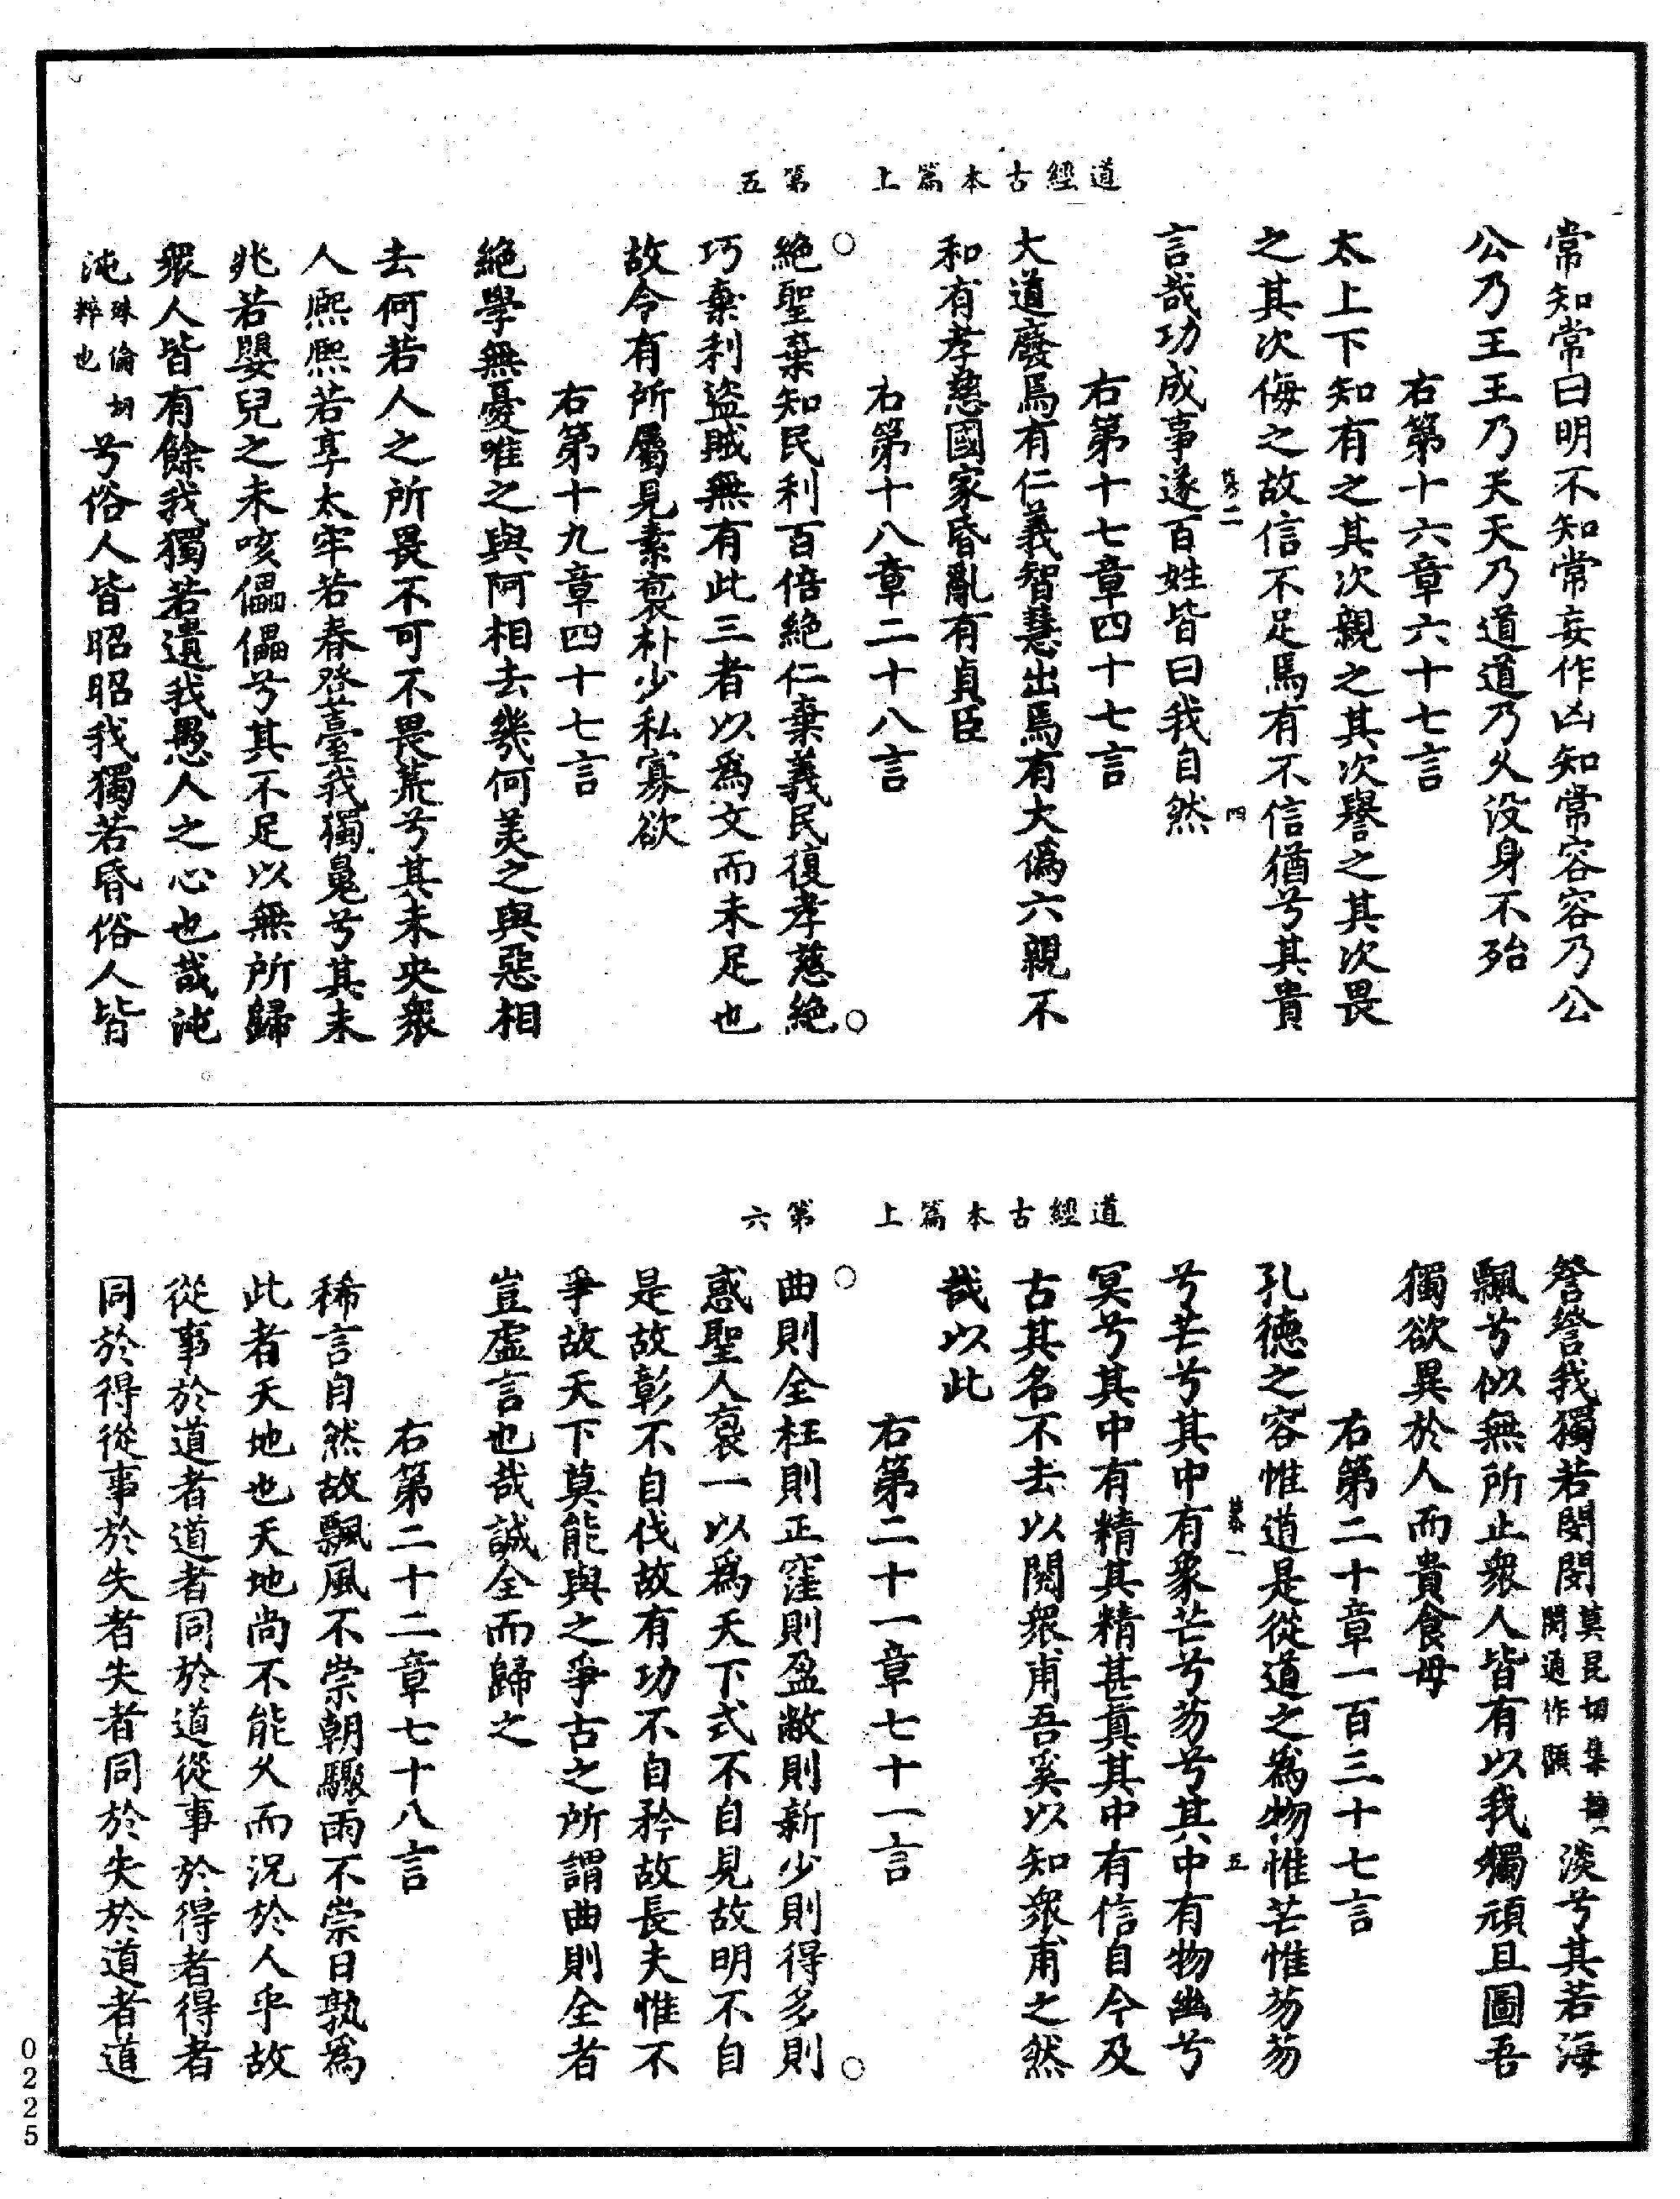 道經古本篇上　第五
常知常曰明不知常妄作凶知常容容乃公
公乃王王乃天天乃道道乃久没身不殆
右第十六章六十七言
太上下知有之其次親之其次譽之其次畏
之其次侮之故信不足焉有不信猶兮其貴
四
言哉功成事遂百姓皆曰我自然
右第十七章四十七言
大道廢焉有仁義智慧出焉有大僞六親不
和有孝慈國家昏亂有貞臣
右第十八章二十八言
絕聖棄知民利百倍絕仁棄義民復孝慈絕
巧棄利盜賊無有此三者以爲文而未足也
故令有所屬見素裒朴少私寡欲
右第十九章四十七言
絕學無憂唯之與阿相去幾何美之與惡相
去何若人之所畏不可不畏荒兮其未央衆
人熙熙若享太牢若春登臺我獨㒵兮其未
兆若嬰兒之未咳儡儡兮其不足以無所歸
衆人皆有餘我獨若遺我愚人之心也哉沌
沌殊倫切粹也兮俗人皆昭昭我獨若昏俗人皆
道經古本篇上　第六
詧詧我獨若閔閔莫昆切集韻閔通作顐淡兮其若海
飄兮似無所止衆人皆有以我獨頑且圖吾
獨欲異於人而貴食母
右第二十章一百三十七言
孔德之容惟道是從道之爲物惟芒惟芴芴
五
兮芒兮其中有象芒兮芴兮其中有物幽兮
冥兮其中有精其精甚眞其中有信自今及
古其名不去以閱衆甫吾奚以知衆甫之然
哉以此
右第二十一章七十一言
曲則全枉則正窪則盈敝則新少則得多則
惑聖人裒一以爲天下式不自見故明不自
是故彰不自伐故有功不自矜故長夫惟不
爭故天下莫能與之爭古之所謂曲則全者
豈虛言也哉誠全而歸之
右第二十二章七十八言
稀言自然故飄風不崇朝驟雨不崇日孰爲
此者天地也天地尚不能久而況於人乎故
從事於道者道者同於道從事於得者得者
同於得從事於失者失者同於失於道者道
0225